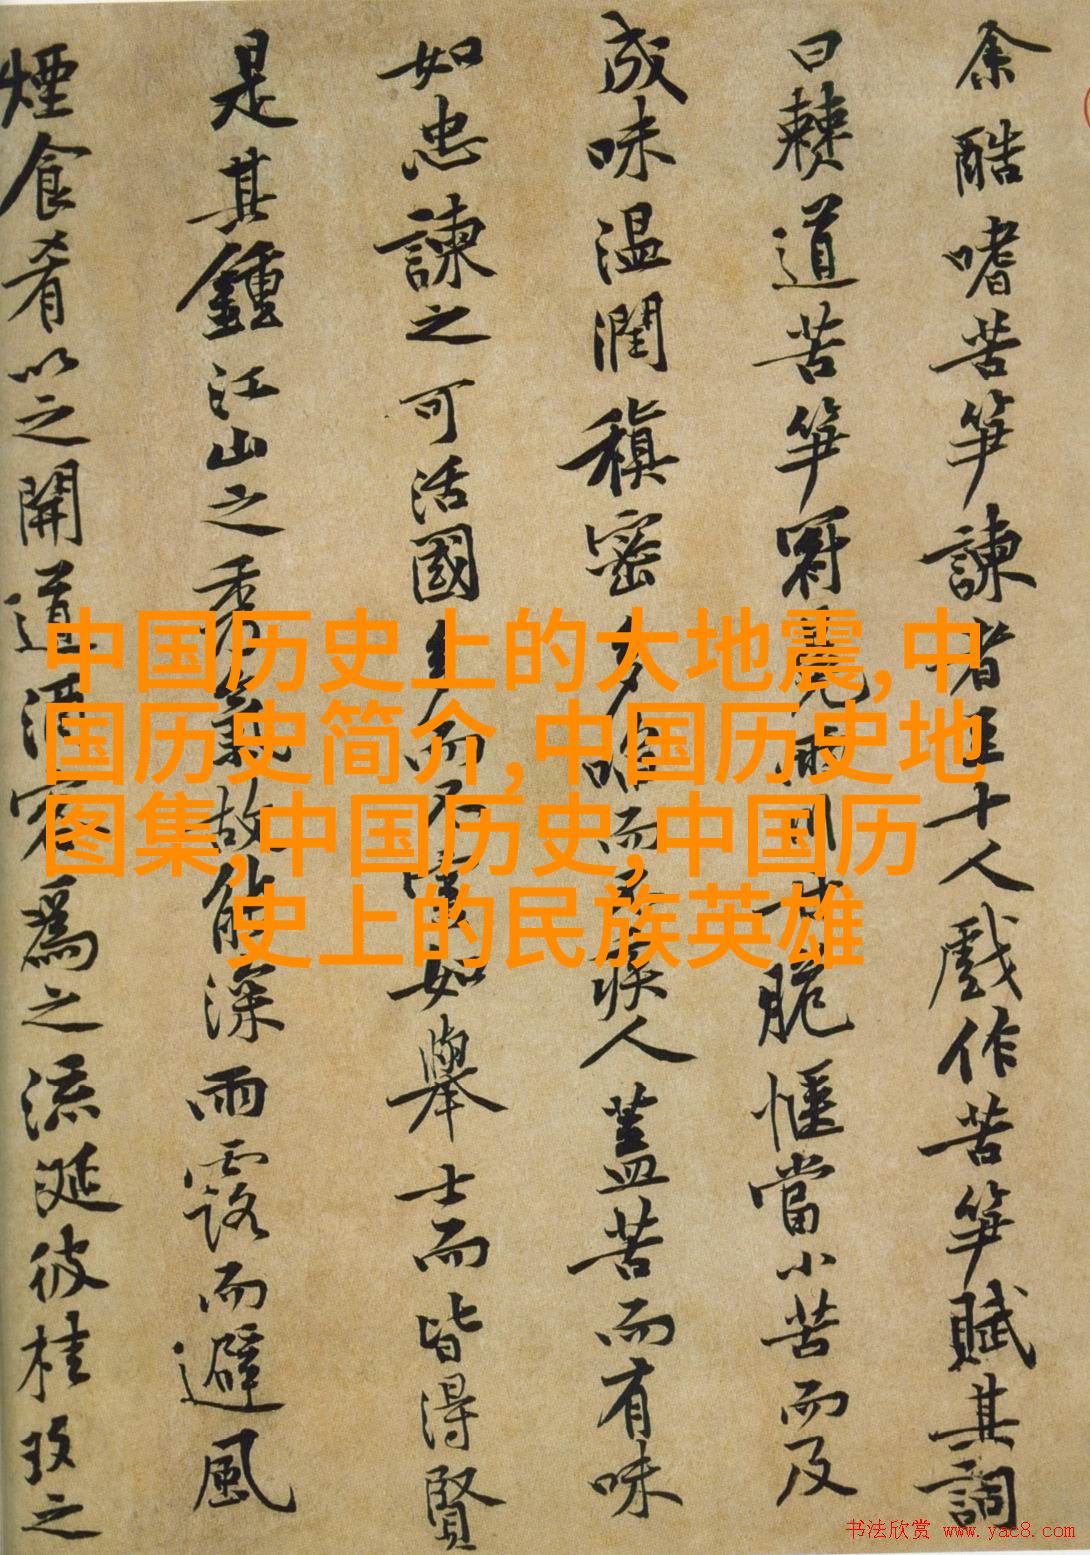 余酷嗜苦笋諫者至十人戲作苦笋賦其詞
曰僰道苦笋冠冕兩川甘脆愜當小苦而及
成味温潤稹密多啗而不疾人蓋苦而有味
如忠諫之可活國多而不害如舉士而皆得賢
是其鍾江山之秀氣故能深雨露而避風
煙食肴以之開道酒客爲之流涎彼桂玫之
中国历史上的大地震,中
国历史简介,中国历史地
图集,中国历史,中国历
史上的民族英雄
书法欣赏 www.yac8.com